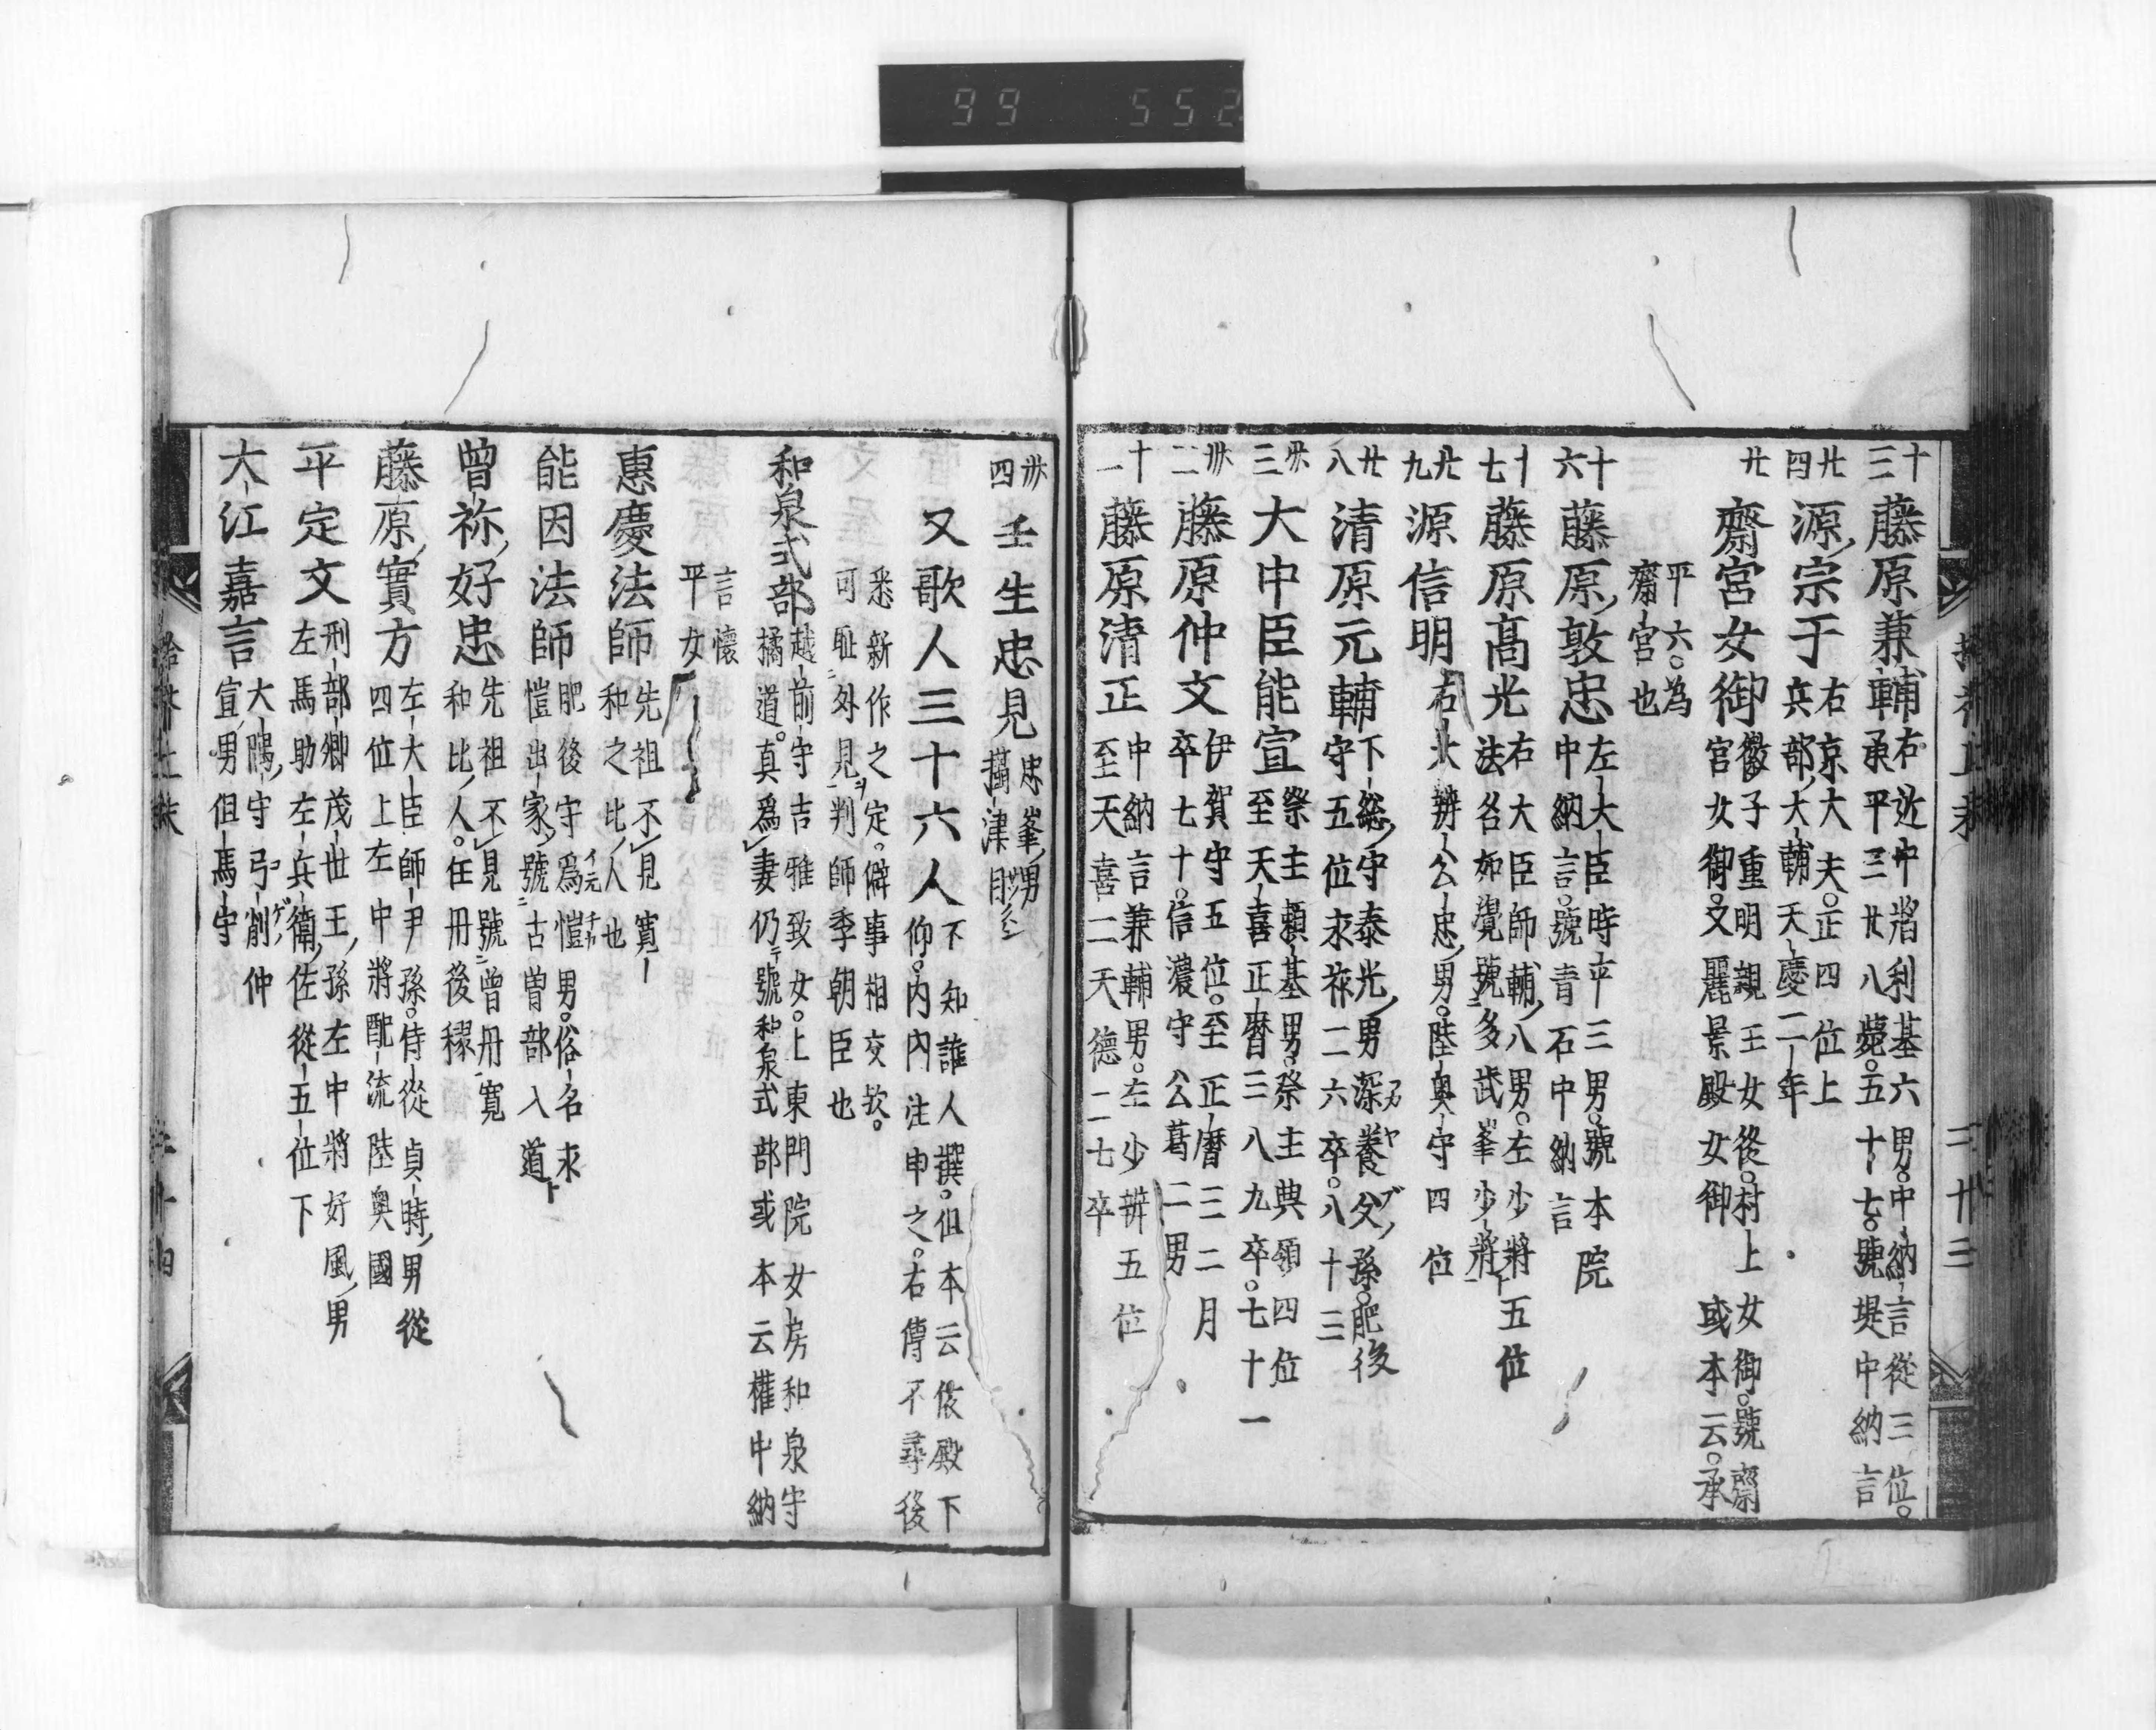 99 552
十三 藤原兼輔 右近中將利基六男。中納言從三位。
承平三廿八薨。五十七。號堤中納言
廿四 源宗于 右京大夫。正四位上
兵部大輔天慶二年
廿 齋宮女御 徽子重明親王女後。村上女御。號齋
宮女御。又麗景殿女御 或本云。承
平六。為
齋宮也
十六 藤原敦忠 左大臣時平三男。號本院
中納言。號青石中納言
十七 藤原高光 右大臣師輔八男。左少將五位
法名如覺號多武峯少將
廿九 源信明 右大辨公忠男。陸奥守四位
廿八 清原元輔 下総守泰光男深養父孫。肥後
守五位永祚二六卒。八十三
卅三 大中臣能宣 祭主頼基男。祭主典領四位
至天喜正暦三八九卒。七十一
卅二 藤原仲文 伊賀守五位。至正暦三二月
卒七十。信濃守公葛二男
十一 藤原清正 中納言兼輔男。左少辨五位
至天喜二天德二七卒
卅四 壬生忠見 忠峯男
攝津目
又歌人三十六人 不知誰人撰。但本云依殿下
仰。内内注申之。右傳不尋後
悉新作之定。僻事相交欤。
可耻外見判師季朝臣也
和泉式部 越前守吉雅致女。上東門院女房和泉守
橘道。真爲妻仍號和泉式部或本云權中納
言懷
平女
惠慶法師 先祖不見寛
和之比人也
能因法師 肥後守爲愷男。俗名永
愷出家號古曽部入道
曽祢好忠 先祖不見號曽丹寛
和比人。任丹後稼
藤原實方 左大臣師尹孫。侍從貞時男從
四位上左中將配流陸奥國
平定文 刑部卿茂世王孫左中將好風男
左馬助左兵衛佐從五位下
大江嘉言 大隅守弓削仲
宣男但馬守
二十三